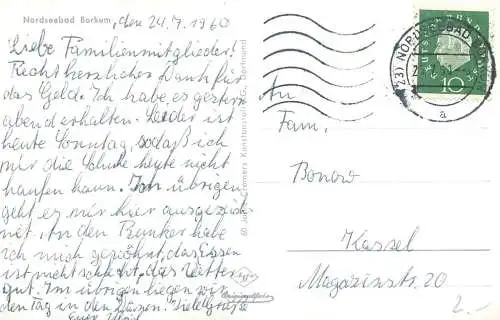 Nordseebad Borkum, den 24.7.1960
Liebe Familienmitglieder!
Recht herzlichen Dank für
das Geld. Ich habe es gestern
abend erhalten. Leider ist
heute Sonntag, sodaß ich
mir die Schuhe heute nicht
kaufen kann. Im übrigen
geht es mir hier ausgezeich
net. An den Bunker habe
ich mich gewöhnt, das Essen
ist nicht schlecht, das Wetter
gut. Im übrigen liegen wir
den Tag in den Dünen. Viele Grüße
Euer
Cramers Kunstanstalt KG., Dortmund
(23) NORDSEEBAD
a
DEUTSCHE BUNDESPOST
10
An
Fam.
Bonow
Kassel
Magazinstr. 20
2.-